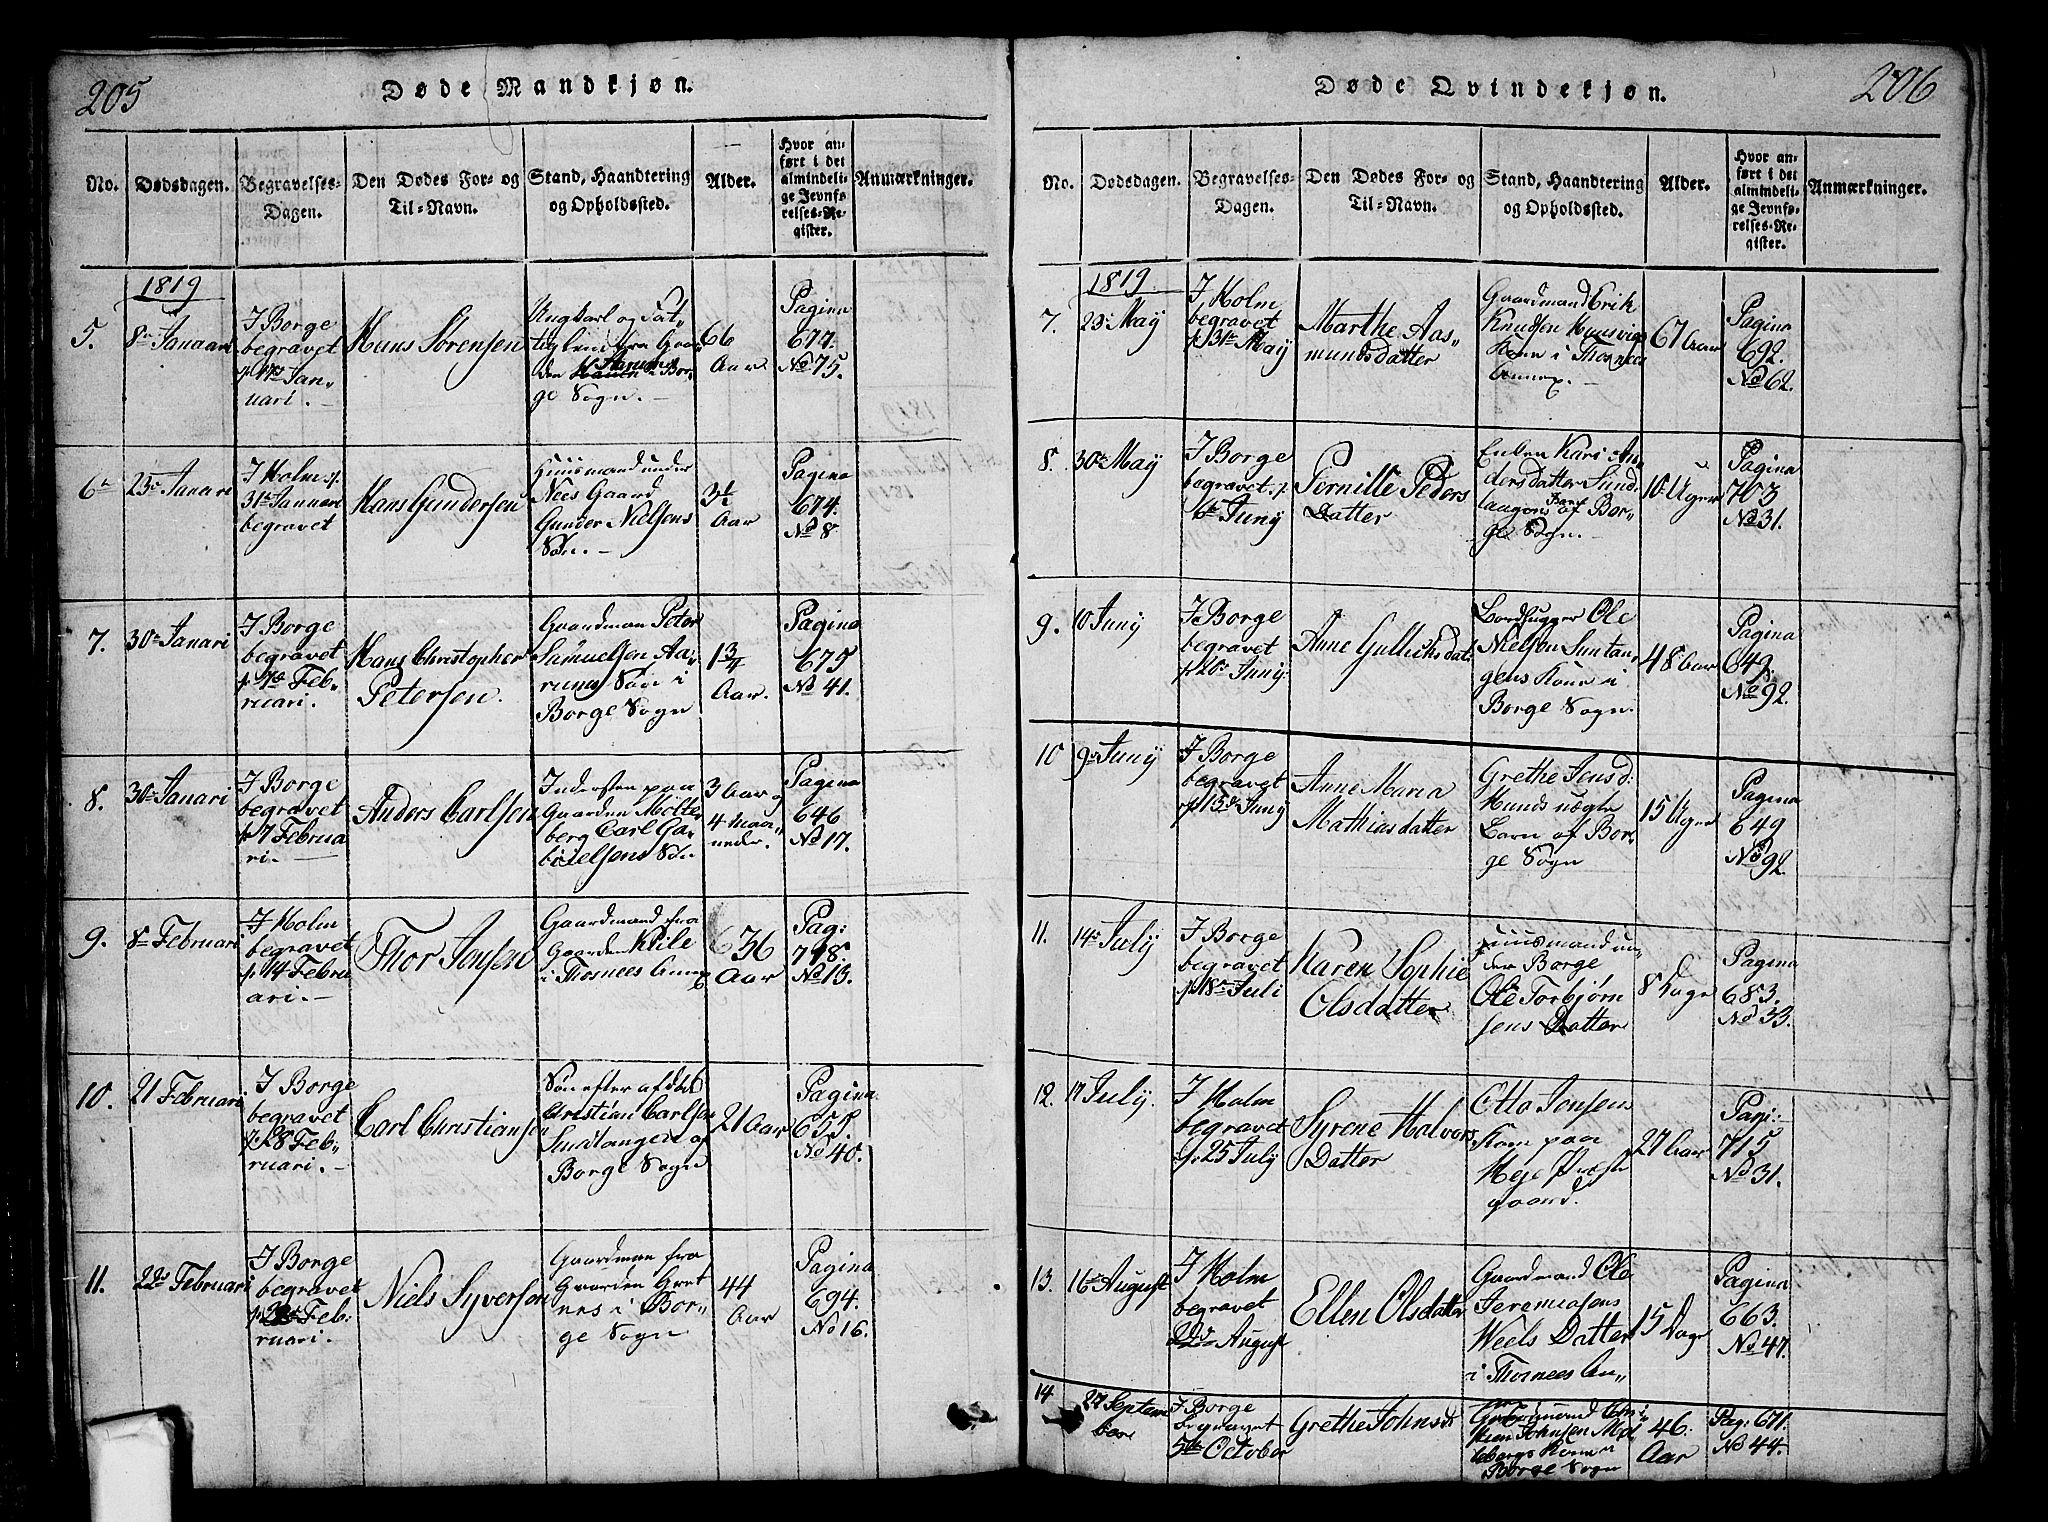 205
Døde Mandkjøn.
No.
Dødsdagen.
Begravelses-
Dagen.
Den Dødes For- og
Til-Navn.
Stand, Haandtering
og Opholdssted.
Alder.
Hvor an-
ført i det
almindeli-
ge Jevnfø-
relses-Re-
gister.
Anmærkninger.
1819
5.
8de Januari
I Borge
begravet
Jan-
uari.
Hans Sörensen
Ungkarl og Fat-
fra Gaar-
den
i Bor-
ge Sogn.
66
Aar
Pagina
677.
No 75.
6
23de Januari
I Holm
31te Januari
begravet
Hans Gundersen
Huusmand under
Nees Gaard
Gunder Nielsens
Sön.
3½
Aar
Pagina
674.
No 8
7.
30te Januari
I Borge
begravet
Feb-
ruari.
Hans Christopher
Petersen.
Gaardman Peter
Samuelsen Aa-
rums Sön i
Borge Sogn
1¾
Aar.
Pagina
675
No 41.
8.
30te Januari
I Borge
begravet
7 Februa
ri.
Anders Carlsen
Indersten paa
Gaarden Molte
berg Carl Ga-
brielsens Sön
3 Aar og
4 Maa-
neder.
Pagina
646
No 17.
9.
8de Februari
I Holm
begravet
14 Febru
ari.
Thor Jensen
Gaardmand fra
Gaarden Kiile
i Thornees Annex
36
Aar
Pag:
718.
No 13.
10.
21 Februari
I Borge
begravet
28 Feb-
ruari.
Carl Christiansen
Sön efter afdöd
Christian Carlsen
Sundlangen af
Borge Sogn
21 Aar
Pagina
655
No 40.
11.
22de Februari
I Borge
begravet
Feb-
ruari.
Niels Syversen
Gaardman fra
Gaarden Gret
nes i Bor-
ge Sogn
44
Aar
Pagina
694.
No 16.
206
Døde Qvindekjøn.
No.
Dødsdagen.
Begravelses-
Dagen.
Den Dødes For- og
Til-Navn.
Stand, Haandtering
og Opholdssted.
Alder.
Hvor an-
ført i det
almindeli-
ge Jevnfø-
relses-Re-
gister.
Anmærkninger.
1819.
7.
23de May
I Holm
begravet
31te May
Marthe Aas-
mundsdatter
Gaardmand Erik
Knudsen Hunsvigs
Kone i Thornees
Annex.
67 Aar
Pagina
692.
No 62.
8.
30te May
I Borge
begravet
6te Juny
Pernille Peders
Datter
Enken Kari An-
dersdatter Sund-
laugens Barn af Bor-
ge Sogn.
10 Uger
Pagina
703
No 31.
9.
10 Juny
I Borge
begravet
20de Juny.
Anne Gullichsdat:
Lordhugger Ole
Nielsen Suntan-
gens Kone i
Borge Sogn.
48 Aar
Pagina
649.
No 92.
10
9de Juny
I Borge
begravet
13de Juny
Anne Maria
Mathiasdatter
Grethe Jensd:
Hunds uægte
Barn af Bor-
ge Sogn
15 Uger
Pagina
649
No 92.
11.
14de July
I Borge
begravet
18de Juli
Karen Sophie
Olsdatter
Huusmand un-
der Borge
Ole Torbjörn
sens Datter
8 Dage
Pagina
683.
No 33.
12.
17 July.
I Holm
begravet
25 July
Syrene Halvors
Datter
Otto Jensens
Kone paa
Præste
gaard.
27 Aar
Pagi:
715
No 31.
13.
16de August
I Holm
begravet
22de August
Ellen Olsdatter
Gaardmand Ole
Jeremiasens
Weels Datter
i Thornees An-
15 Dage
Pagina
663.
No 47.
14
27 Septem
ber
I Borge
begravet
5te October
Grethe Johnsd
Gaardmand
Johnsen Mol
tebergs Kone i
Borge Sogn
46.
Aar
Pag: 671.
No 44.